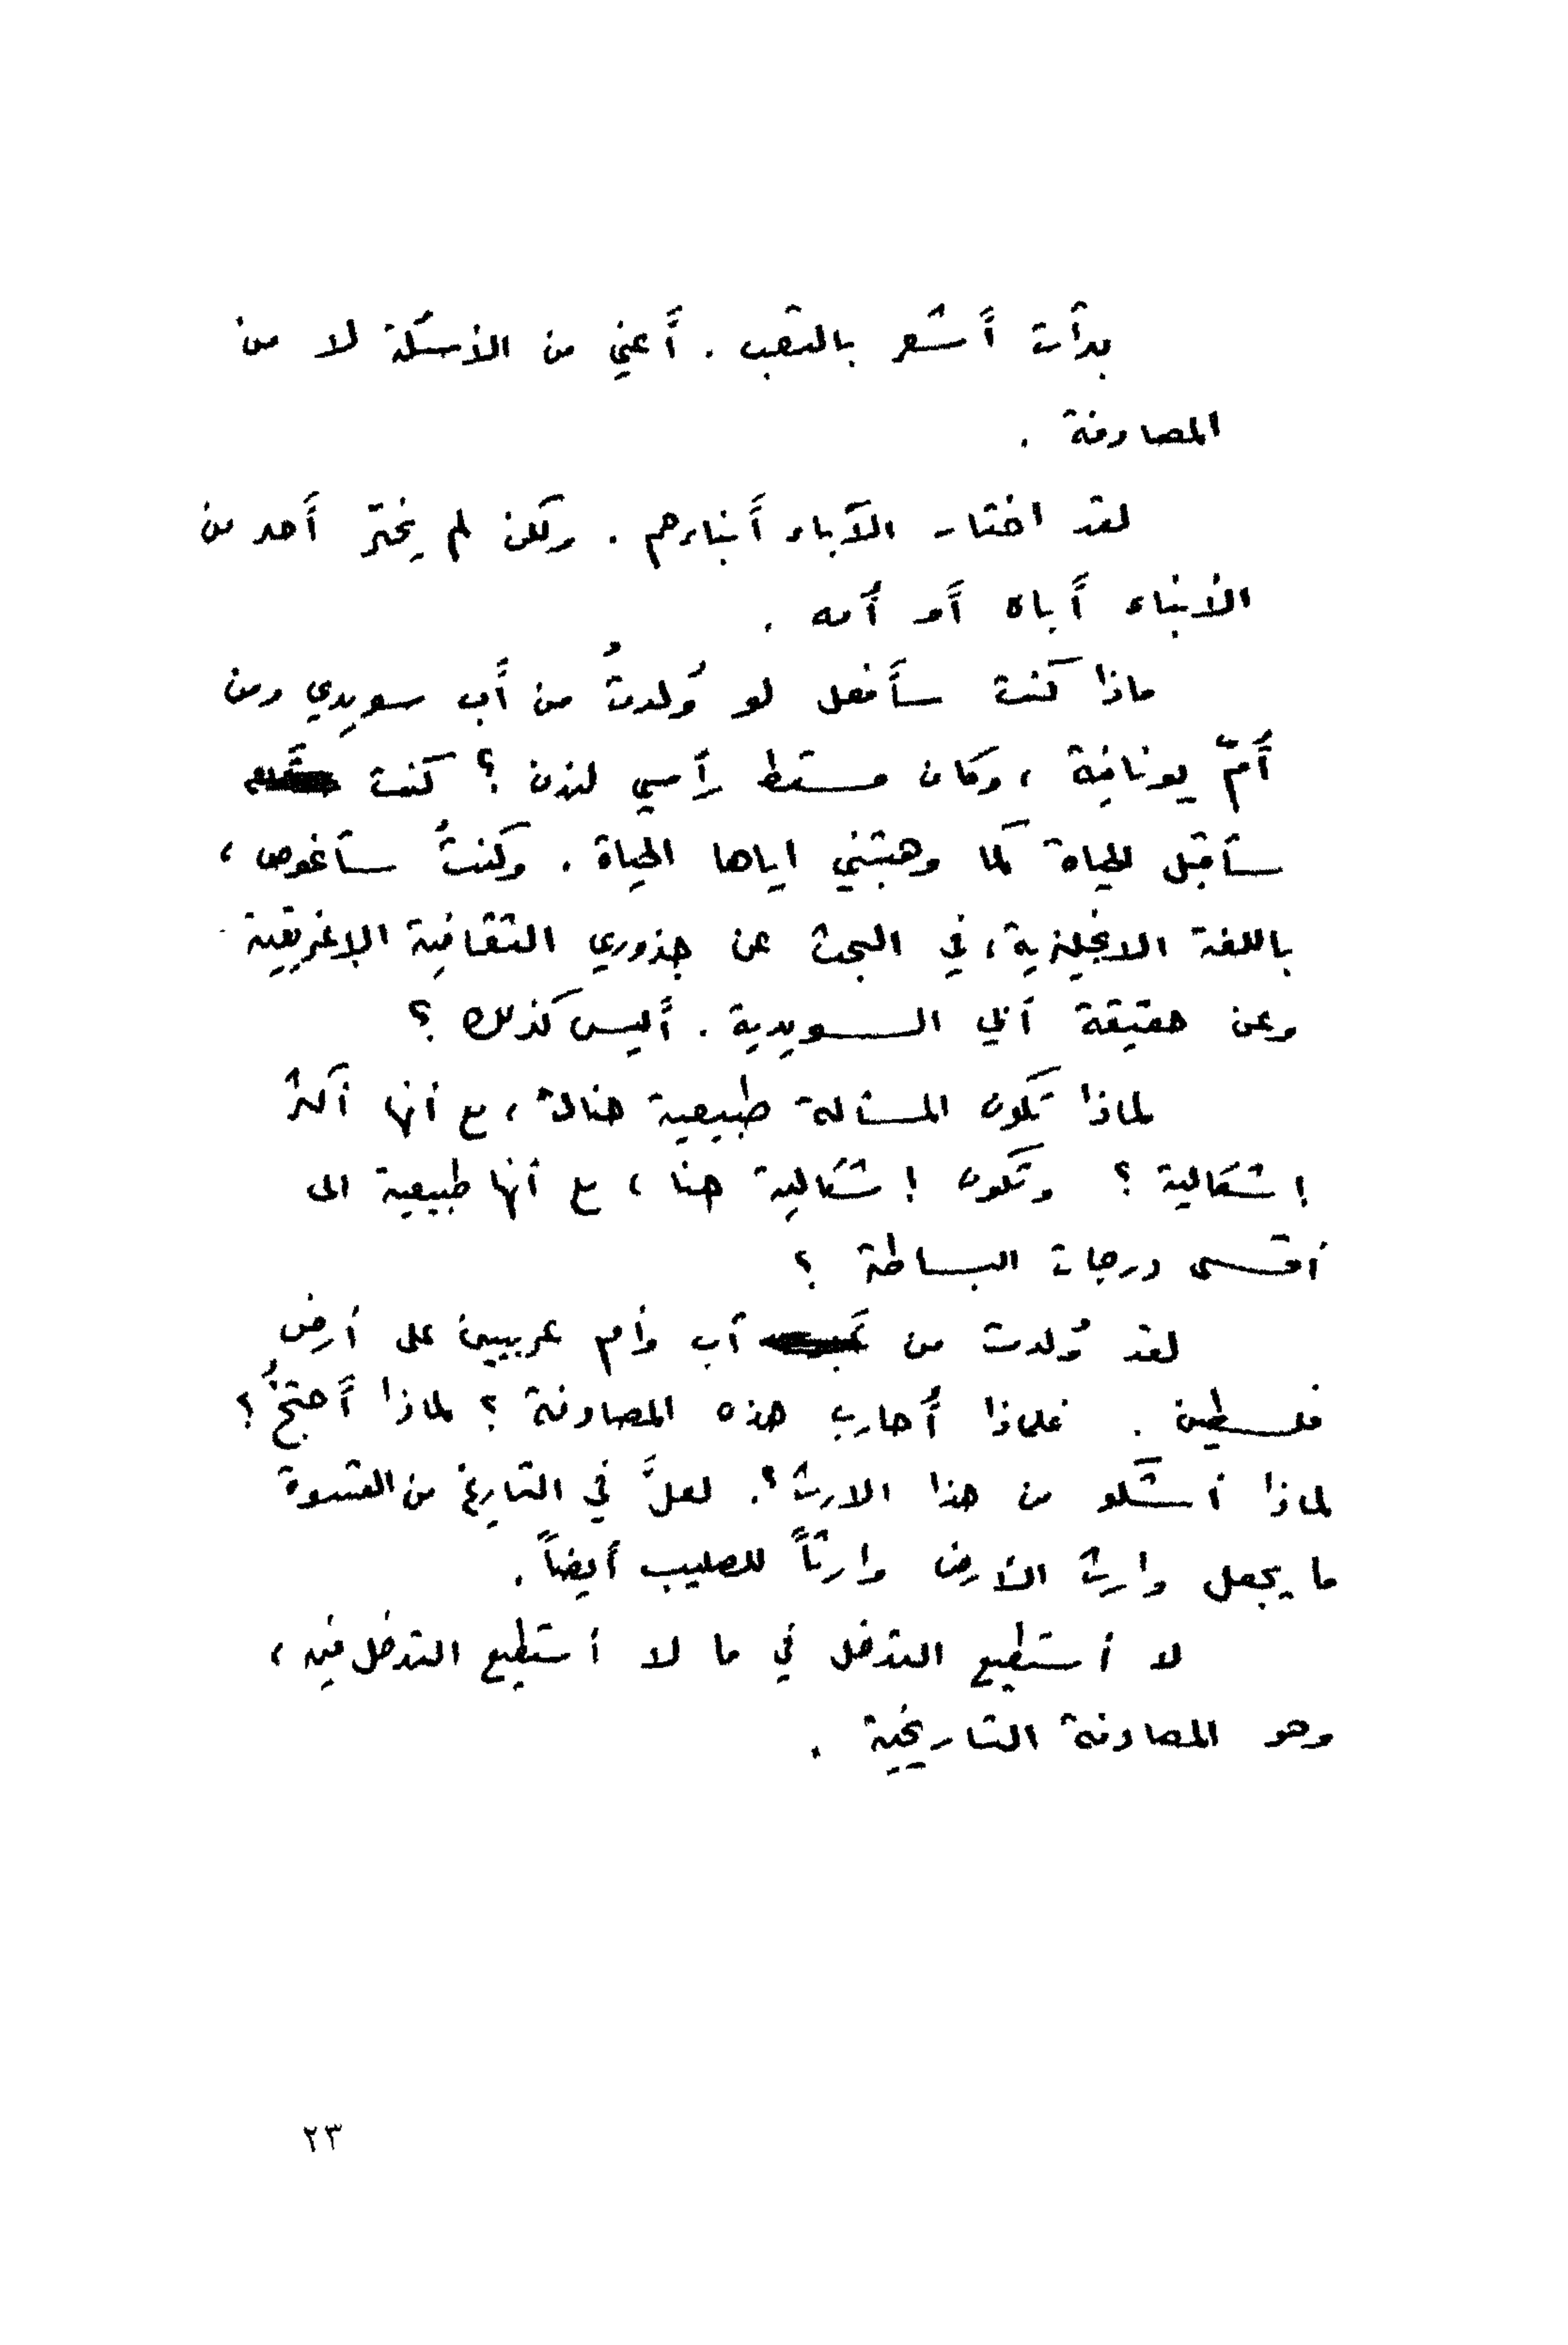 بدأت أشعر بالتعب . أعني من الأسئلة لا من
المصادفة .
لقد اختار الآباء أبناءهم . ولكن لم يختر أحد من
الأبناء أباه أو أُمه .
ماذا كنت سأفعل لو وُلدتُ من أب سويدي ومن
أُمّ يونانية ، وكان مسقط رأسي لندن ؟ كنت
سأقبل الحياة كما وهبتني اياها الحياة . وكنتُ سأغوص ،
باللغة الانجليزية ، في البحث عن جذوري الثقافية الإغريقية
وعن حقيقة أبي السويدية . أليس كذلك ؟
لماذا تكون المسألة طبيعية هناك ، مع أنها أكثر
إشكالية ؟ وتكون إشكالية هنا ، مع أنها طبيعية الى
أقسى درجات البساطة ؟
لقد وُلدت من أب وأم عربيين على أرض
فلسطين . فلماذا أُحارب هذه المصادفة ؟ لماذا أحتجُّ ؟
لماذا أشكو من هذا الارث ؟ . لعلَّ في التاريخ من القسوة
ما يجعل وارث الأرض وارثاً للصليب أيضاً .
لا أستطيع التدخل في ما لا أستطيع التدخل فيه ،
وهو المصادفة التاريخية .
٢٣